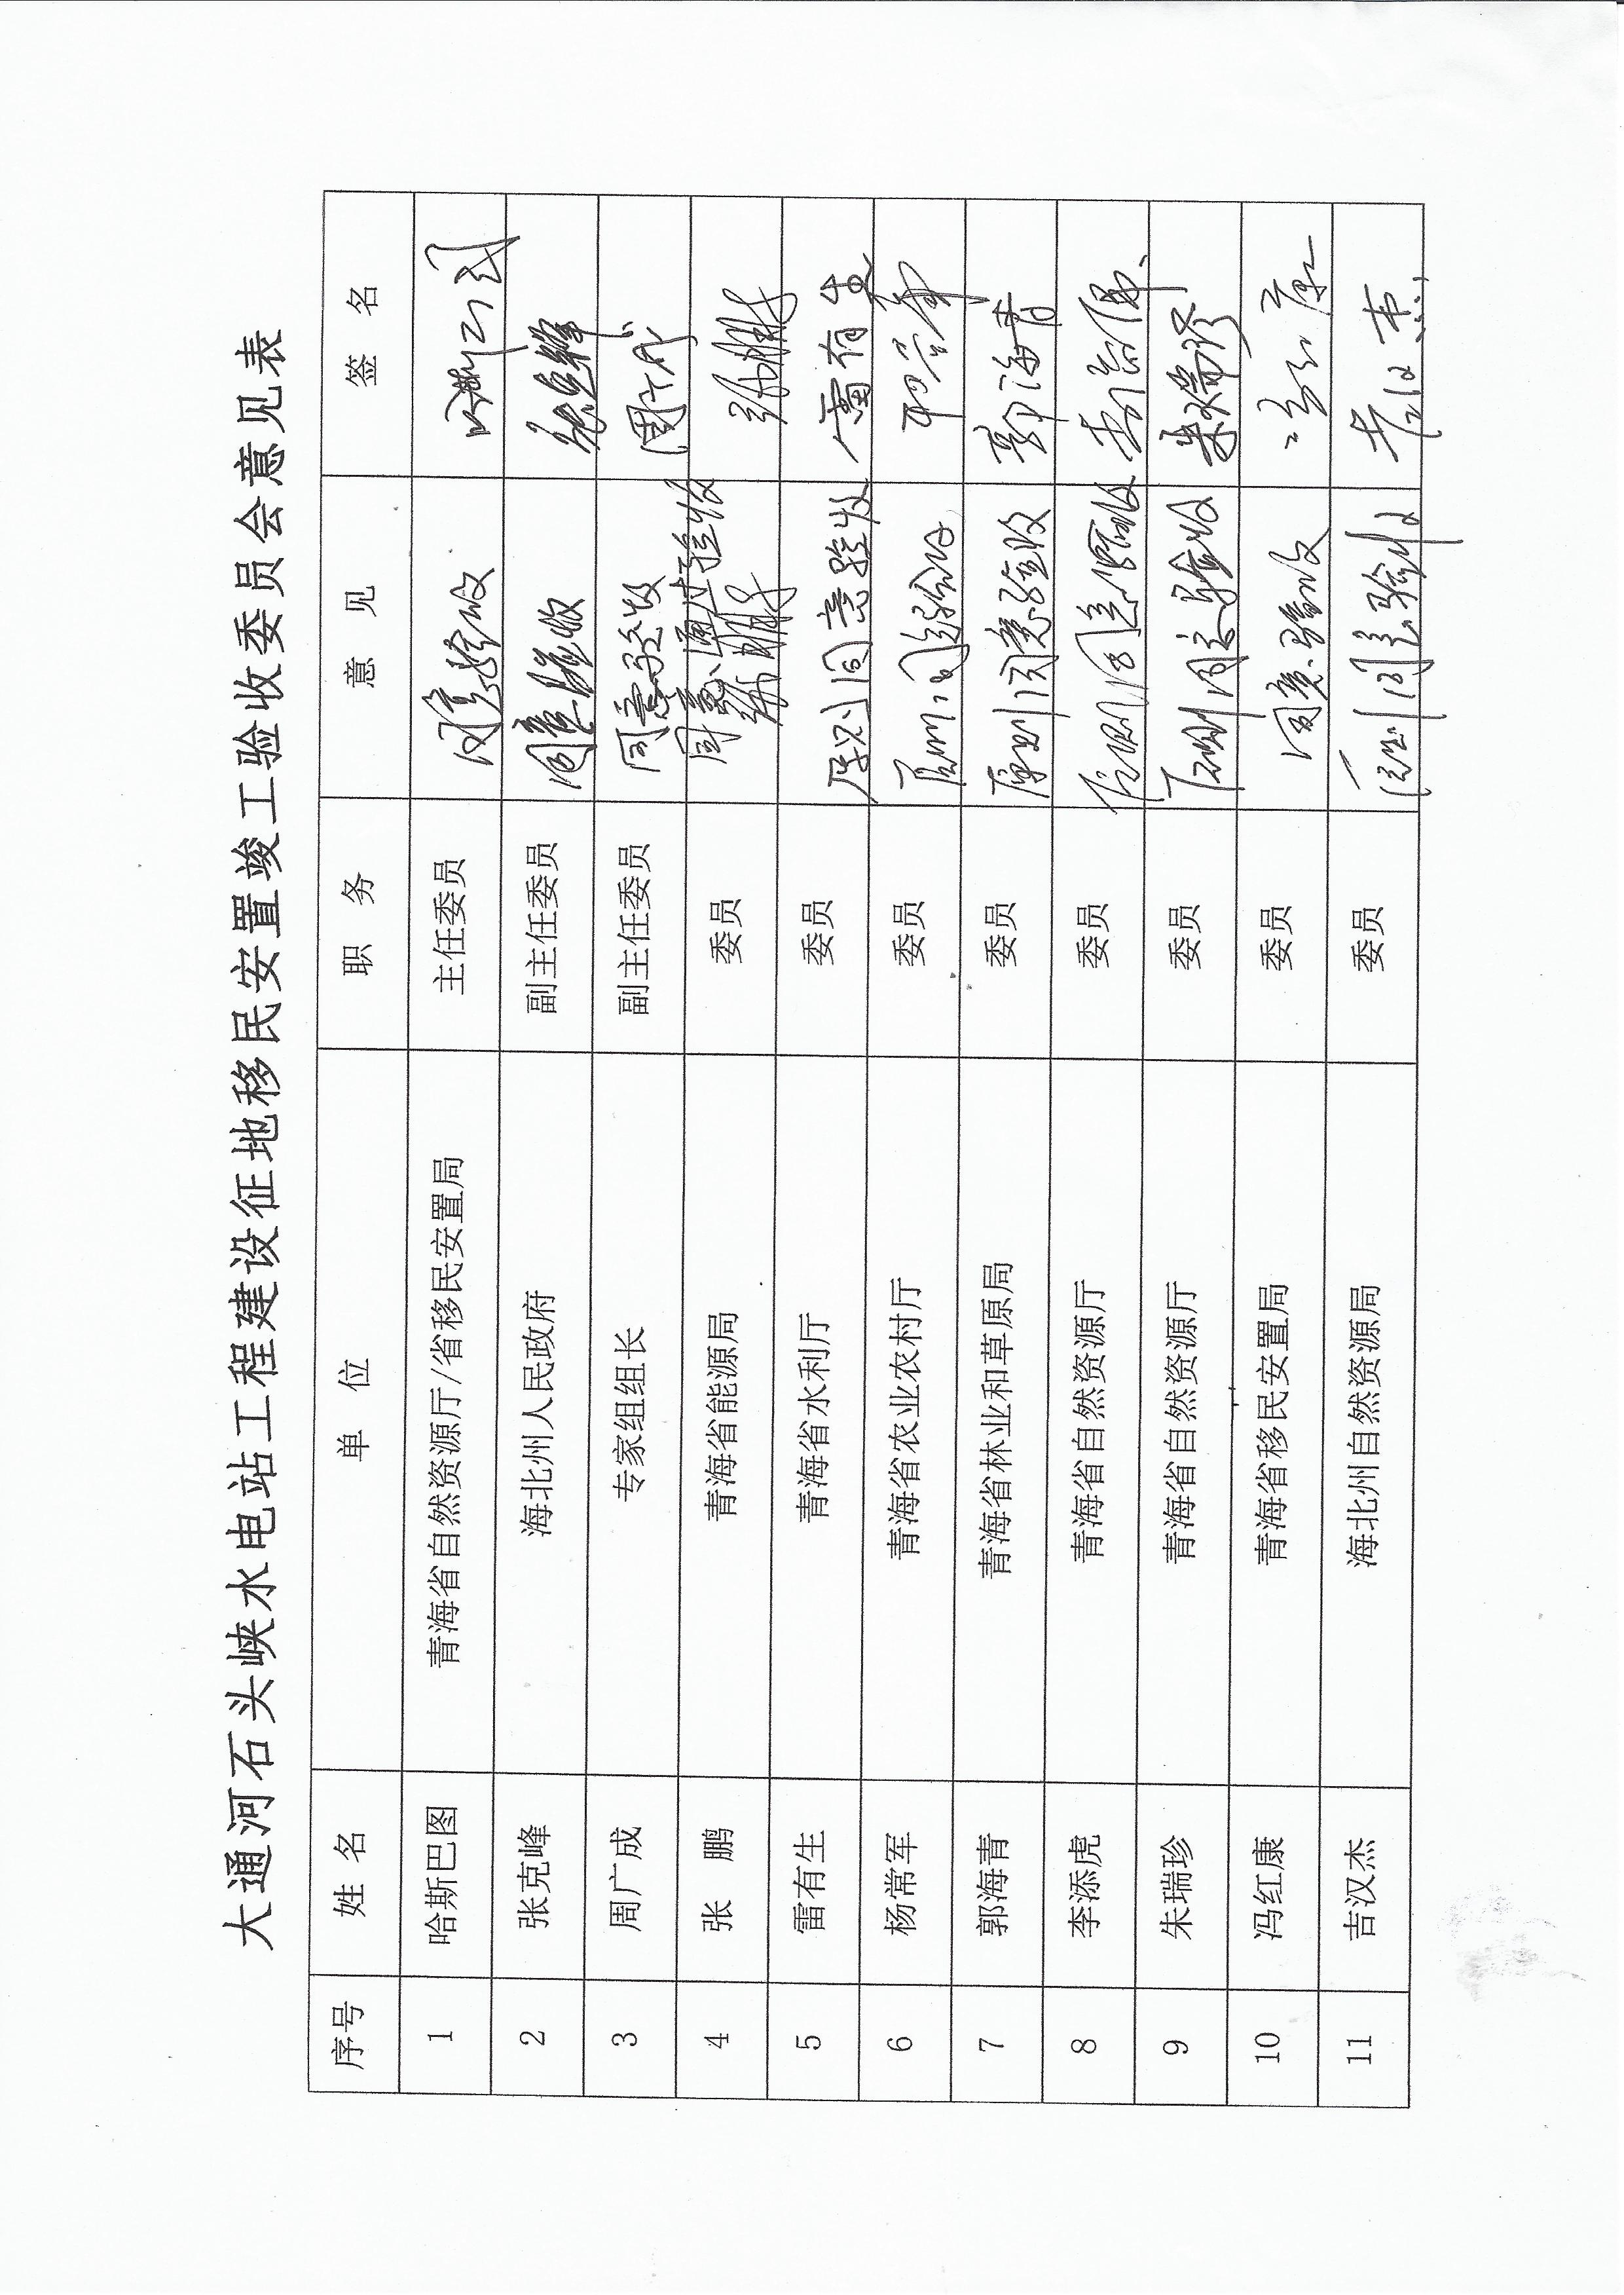 大通河石头峡水电站工程建设征地移民安置竣工验收委员会意见表
序号 姓 名 单 位 职 务 意 见 签 名
1 哈斯巴图 青海省自然资源厅/省移民安置局 主任委员 同意验收
2 张克峰 海北州人民政府 副主任委员 同意验收 张克峰
3 周广成 专家组组长 副主任委员 同意验收 周广成
4 张 鹏 青海省能源局 委员 同意通过验收 张鹏 张鹏
5 雷有生 青海省水利厅 委员 原则同意验收 雷有生
6 杨常军 青海省农业农村厅 委员 原则同意验收
7 郭海青 青海省林业和草原局 委员 原则同意验收 郭海青
8 李添虎 青海省自然资源厅 委员 原则同意验收
9 朱瑞珍 青海省自然资源厅 委员 原则同意验收 朱瑞珍
10 冯红康 青海省移民安置局 委员 同意验收 冯红康
11 吉汉杰 海北州自然资源局 委员 原则同意验收 吉汉杰